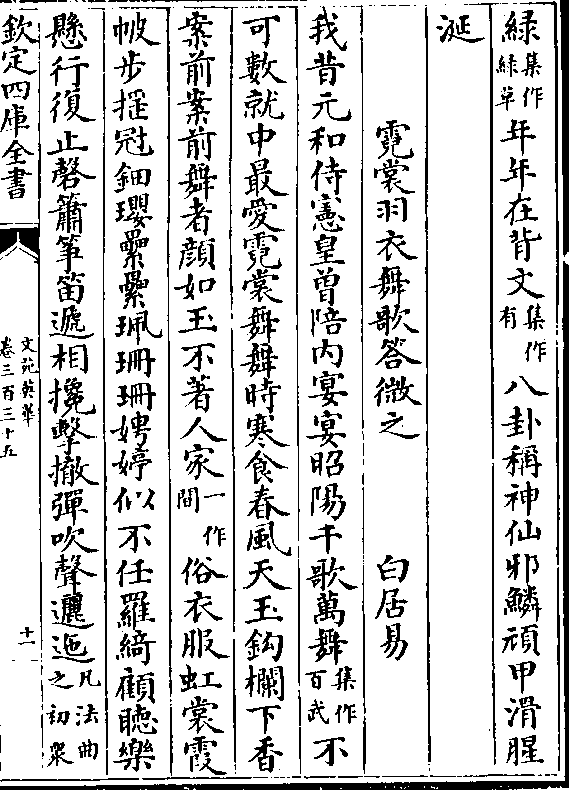 緑集作緑草年年在背文集作有八卦稱神仙邪鱗頑甲滑腥
涎
霓裳羽衣舞歌答微之 白居易
我昔元和侍憲皇曽陪内宴宴昭陽千歌萬舞集作百武不
可數就中最愛霓裳舞舞時寒食春風天玉鈎欄下香
案前案前舞者顔如玉不著人家一作間俗衣服虹裳霞
帔步揺冠鈿瓔纍纍珮珊珊娉婷似不任羅綺顧聽樂
懸行復止磬簫筝笛遞相攙擊擫彈吹聲邐迤凡法曲之初衆
欽定四庫全書
文苑英華
卷三百三十五
十一